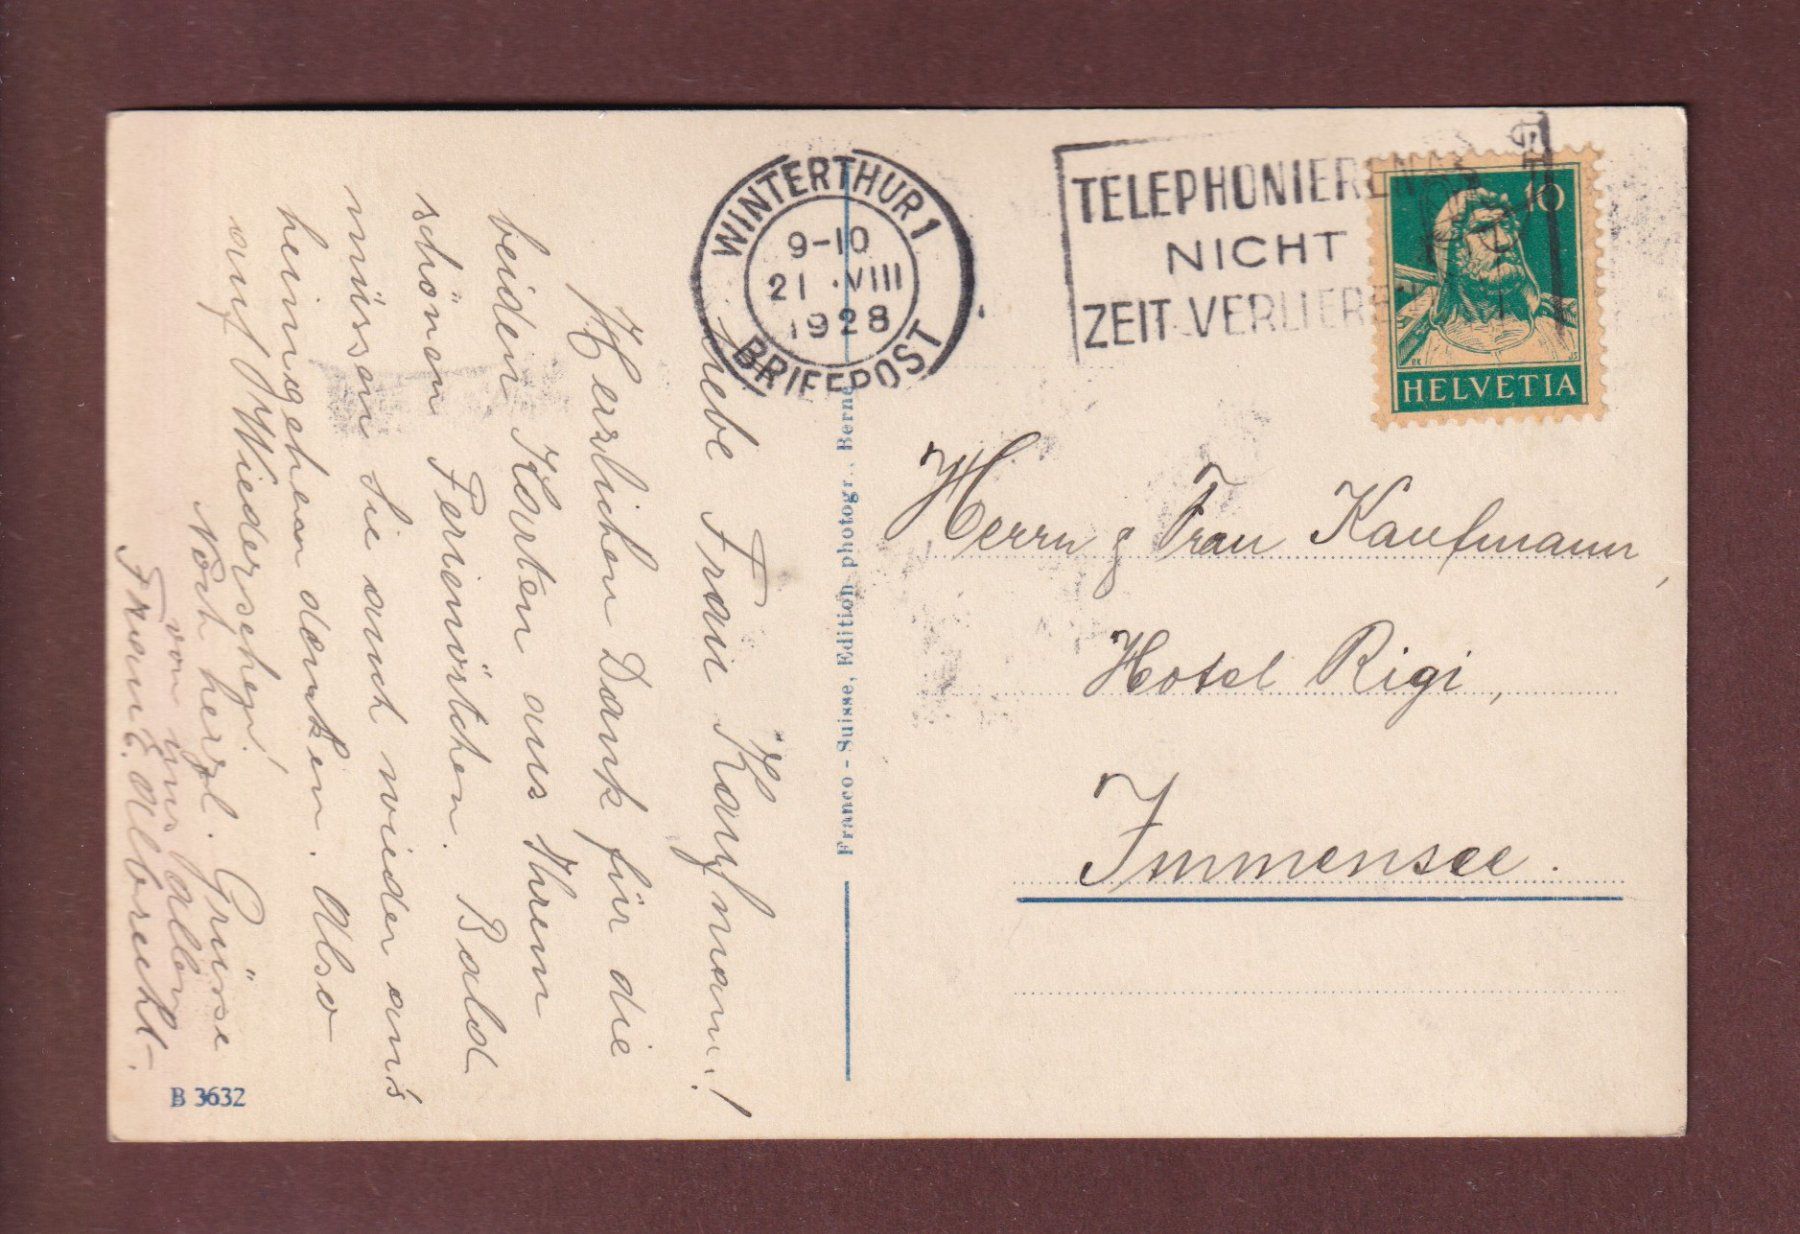 Liebe Frau Kaufmann!
Herzlichen Dank für die
beiden Karten aus Ihrem
schönen Ferienörtchen. Bald
müssen Sie auch wieder an's
heimgehen denken. Also
auf Wiedersehen!
Noch herzl. Grüsse
von uns allen
Frau E. Albrecht.
B 3632
WINTERTHUR 1
9-10
21.VIII
1928
BRIEFPOST
Franco-Suisse, Edition photogr., Berne
TELEPHONIEREN
NICHT
ZEIT VERLIEREN
10
HELVETIA
Herrn & Frau Kaufmann,
Hotel Rigi,
Immensee.